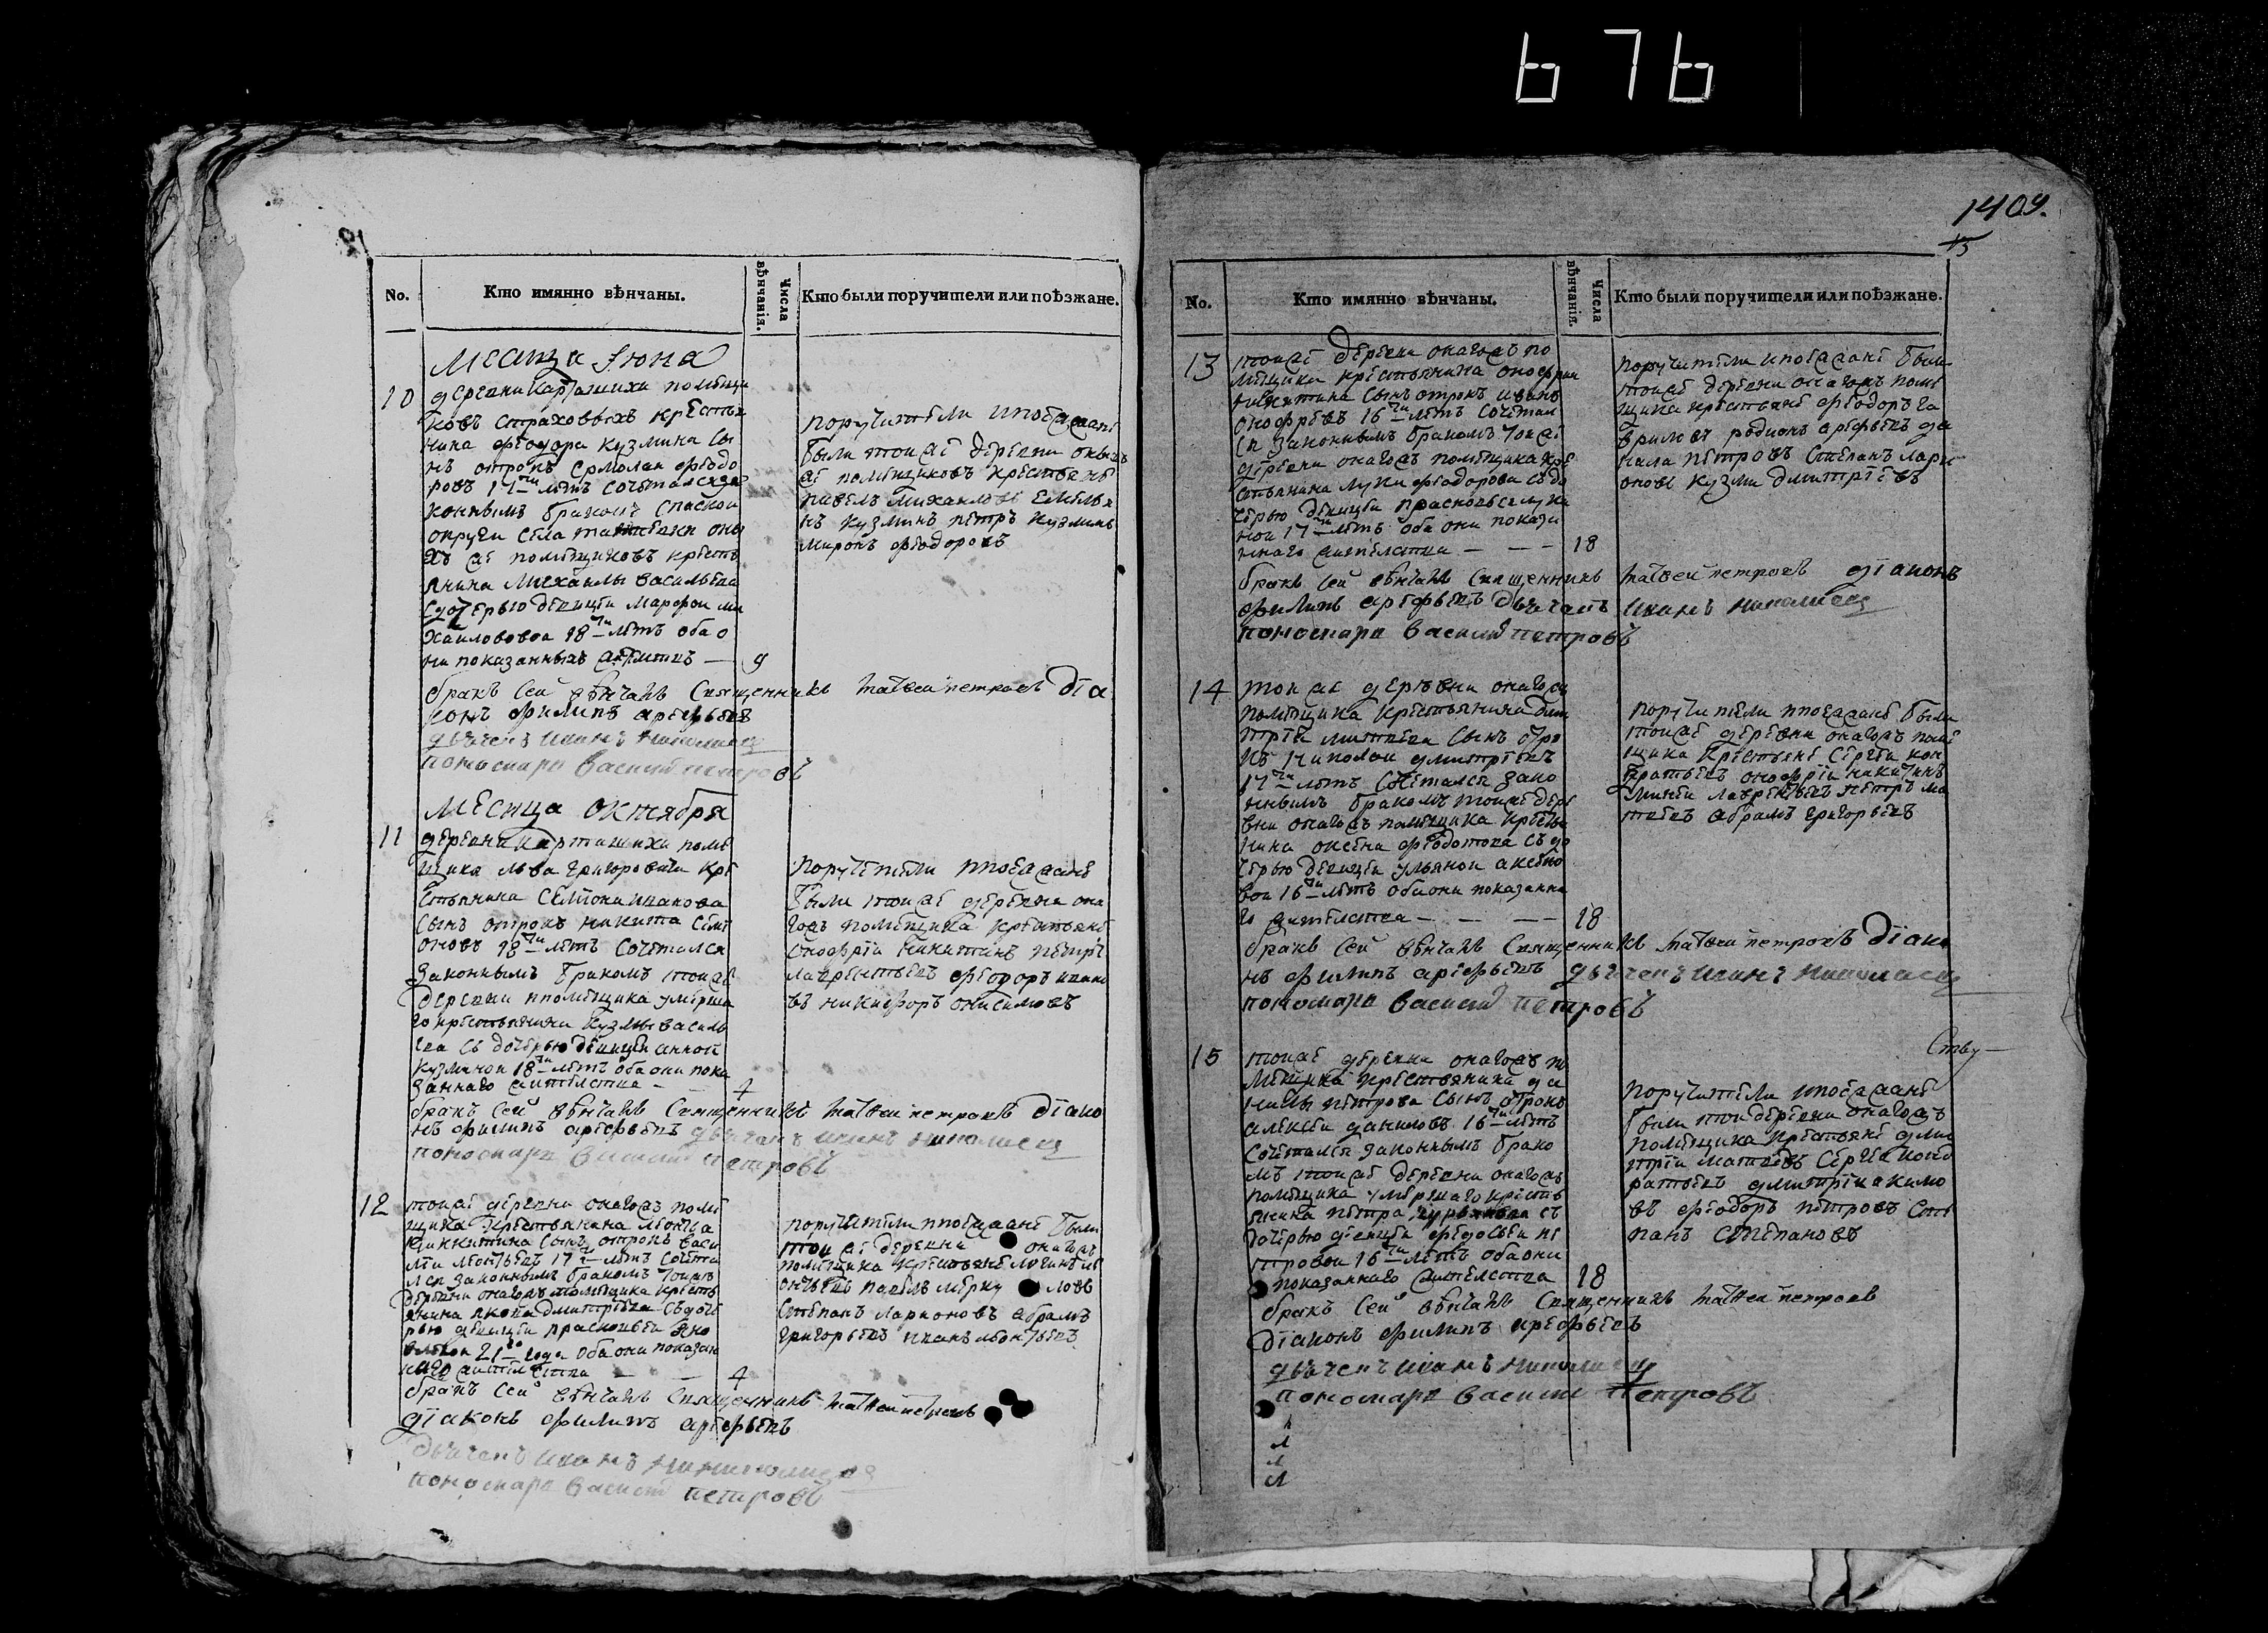 676
No.
Кто имянно вѣнчаны.
числа вѣнчанія.
Кто были поручители или поѣзжане.
месяца Июна
10
деревни Карташихи помѣщи
ковъ Страховыхъ крестья
нина Феодора Кузмина сы
нъ отрокъ Ермолаи Феодо
ровъ 17ти лѣтъ сочетался за
коннымъ бракомъ Спаской
округи села
хъ же помѣщиковъ кресть
янина Михаилы Васильева
съ дочерью девицеи Марфои ми
хаиловои 18ти лѣтъ оба о
ни показанныхъ жителтвъ — 9
поручители и поезжане
были тои же деревни оныхъ
же помѣщиковъ крестьяне
Павелъ Михаиловъ Емелья
нъ Кузминъ Петръ Кузминъ
Миронъ Феодоровъ
бракъ сеи вѣнчалъ Священникъ Матвеи Петровъ Діа
конъ Филипъ Арефьевъ
дьячекъ Иванъ Николаевъ
пономарь Василеи Петровъ
месяца октября
11
деревни Карташихи помѣ
щика Льва Григоровича кре
стьянина Семиона Иванова
сынъ отрокъ Никита Семи
оновъ 18ти лѣтъ сочетался
законнымъ бракомъ тои же
деревни и помѣщика умерша
го крестьянина Кузмы Василь
ева съ дочерью девицеи Анной
Кузминои 18ти лѣтъ оба они пока
заннаго жителства — 4
поручители и поезжане
были тои же деревни она
гожъ помѣщика крестьяне
Онофріи Никитинъ Петръ
Лаврентьевъ Феодоръ Ивано
въ Никифоръ Онисимовъ
бракъ сеи вѣнчалъ Священникъ Матвеи Петровъ Діако
нъ Филипъ Арефьевъ дьячекъ Иванъ Николаевъ
пономарь Василеи Петровъ
12
тои же деревни онагожъ помѣ
щика крестьянина Леонтья
Никитина сынъ отрокъ Васи
леи Леонтьевъ 17ти лѣтъ сочета
лся законнымъ бракомъ тои же
деревни онагожъ помѣщика кресть
янина Якова Дмитріева съ доче
рью девицеи Прасковьеи Яко
влевои 21го года оба они показан
наго жителства — 4
поручители и поезжане были
тои же деревни онагожъ
помѣщика крестьяне Логинъ Ле
онтьевъ Павелъ Мерку ловъ
Степанъ Ларионовъ Абрамъ
Григорьевъ Иванъ Леонтьевъ
бракъ сеи вѣнчалъ Священникъ Матвеи Петровъ
діаконъ Филипъ Арефьевъ
дьячекъ Иванъ Николаевъ
пономарь Василеи Петровъ
1409.
No.
Кто имянно вѣнчаны.
числа вѣнчанія.
Кто были поручители или поѣзжане.
13
тои же деревни онагожъ по
мѣщика крестьянина Онофрия
Никитина сынъ отрокъ Иванъ
Онофревъ 16ти лѣтъ сочетал
ся законнымъ бракомъ тои же
деревни онагожъ помѣщика кре
стьянина Луки Феодорова съ до
черью девицеи Прасковьеи Луки
нои 17ти лѣтъ оба они показа
ннаго жителства — — — 18
поручители и поезжане были
тои же деревни онагожъ помѣ
щика крестьяне Феодоръ Га
вриловъ Родионъ Арефьевъ Да
нила Петровъ Степанъ Лари
оновъ Кузма Дмитріевъ
бракъ сеи вѣнчалъ Священникъ Матвеи Петровъ діаконъ
Филипъ Арефьевъ Дьячекъ Иванъ Николаевъ
пономарь Василеи Петровъ
14
тои же деревни онагожъ
помѣщика крестьянина Дми
трія Матвѣева сынъ отро
къ Дмитріевъ
17ти лѣтъ сочетался зако
ннымъ бракомъ тои же дере
вни онагожъ помѣщика кресть
нина Оксена Феодотова съ до
черью девицеи Ульянои Аксено
вои 16ти лѣтъ оба они показанна
го жителства — — — 18
поручители и поезжане были
тои же деревни онагожъ помѣ
щика крестьяне Сергеи Кон
дратьевъ Онофріи Никитинъ
Лаврентьевъ Петръ Ма
твѣевъ Абрамъ Григорьевъ
бракъ сеи вѣнчалъ Священникъ Матвеи Петровъ Діако
нъ Филипъ Арефьевъ дьячекъ Иванъ Николаевъ
пономарь Василеи Петровъ
15
тои же деревни онагожъ по
мѣщика крестьянина Да
нилы Петрова сынъ отрокъ
Алексеи Даниловъ 16ти лѣтъ
сочетался законнымъ брако
мъ тои же деревни онагожъ
помѣщика умершаго кресть
янина Петра съ
дочерью девицеи Федосьеи Пе
тровои 16ти лѣтъ оба они
показаннаго жителства 18
поручители и поезжане
были тои деревни онагожъ
помѣщика крестьяне Дми
трии Матвѣевъ Сергеи Конд
ратьевъ Дмитріи Акимо
въ Феодоръ Петровъ Сте
панъ Степановъ
бракъ сеи вѣнчалъ Священникъ Матвеи Петровъ
Діаконъ Филипъ Арефьевъ
дьячекъ Иванъ Николаевъ
пономарь Василеи Петровъ